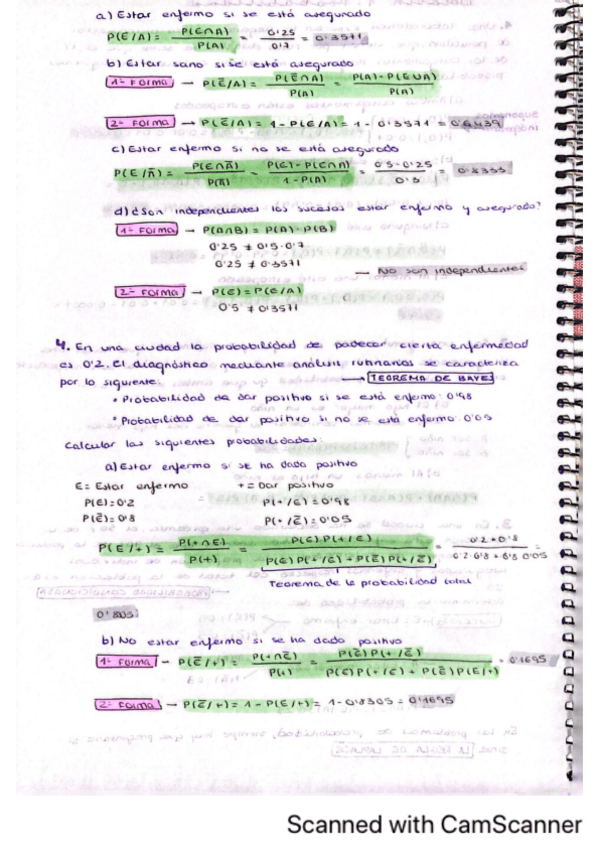 a) Estar enfermo si se está asegurado
P(E/A) = P(E∩A) / P(A) = 0'25 / 0'7 = 0'3571
b) Estar sano si se está asegurado
1ª Forma → P(Ē/A) = P(Ē∩A) / P(A) = P(A) - P(E∪A) / P(A)
2ª Forma → P(Ē/A) = 1 - P(E/A) = 1 - 0'3571 = 0'6429
c) Estar enfermo si no se está asegurado
P(E/Ā) = P(E∩Ā) / P(Ā) = P(E) - P(E∩A) / 1 - P(A) = 0'5 - 0'25 / 0'3 = 0'8333
d) ¿Son independientes los sucesos estar enfermo y asegurado?
1ª Forma → P(A∩B) = P(A) · P(B)
0'25 ≠ 0'5 · 0'7
0'25 ≠ 0'3571
→ No son independientes
2ª Forma → P(E) = P(E/A)
0'5 ≠ 0'3571
4. En una ciudad la probabilidad de padecer cierta enfermedad
es 0'2. El diagnóstico mediante análisis rutinarios se caracteriza
por lo siguiente: → TEOREMA DE BAYES
• Probabilidad de dar positivo si se está enfermo: 0'98
• Probabilidad de dar positivo si no se está enfermo: 0'05
Calcular las siguientes probabilidades:
a) Estar enfermo si se ha dado positivo
E = Estar enfermo + = Dar positivo
P(E) = 0'2 P(+/E) = 0'98
P(Ē) = 0'8 P(+/Ē) = 0'05
P(E/+) = P(+∩E) / P(+) = P(E) P(+/E) / P(E) P(+/E) + P(Ē) P(+/Ē) =
Teorema de la probabilidad total
b) No estar enfermo si se ha dado positivo
1ª Forma → P(Ē/+) = P(+∩Ē) / P(+) = P(Ē) P(+/Ē) / P(E) P(+/E) + P(Ē) P(E/+) = 0'1695
2ª Forma → P(Ē/+) = 1 - P(E/+) = 1 - 0'8305 = 0'1695
Scanned with CamScanner